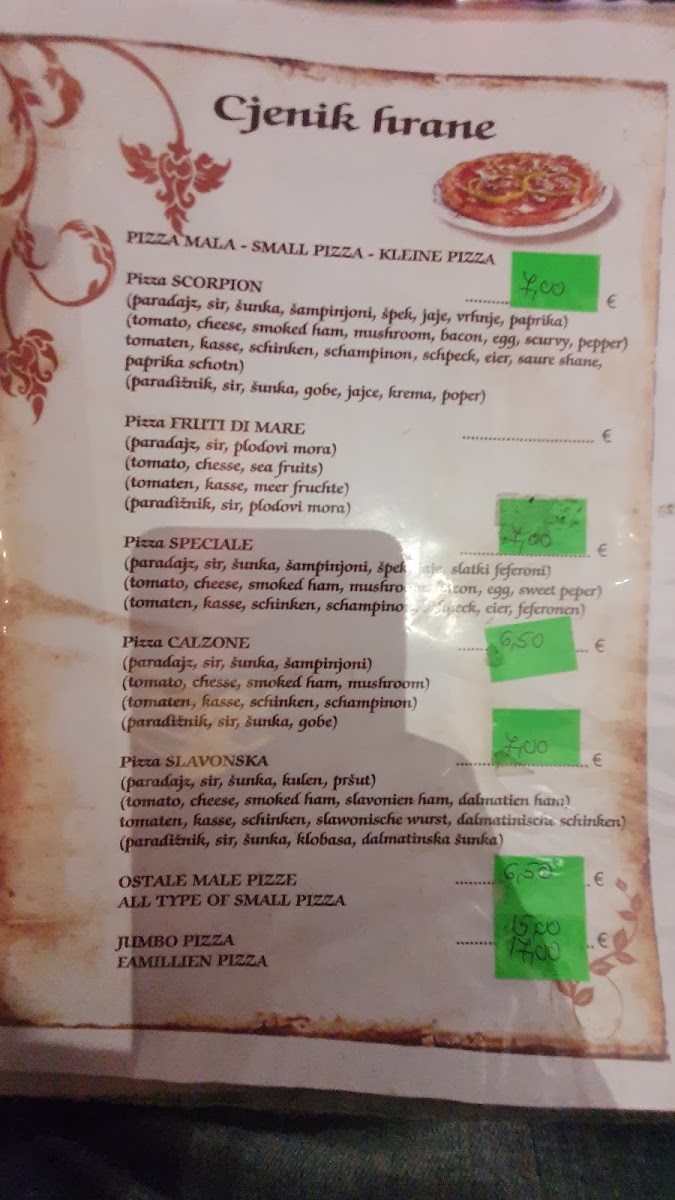 Cjenik hrane
PIZZA MALA - SMALL PIZZA - KLEINE PIZZA
Pizza SCORPION ........... 7,00 €
(paradajz, sir, šunka, šampinjoni, špek, jaje, vrhnje, paprika)
(tomato, cheese, smoked ham, mushroom, bacon, egg, scurvy, pepper)
tomaten, kasse, schinken, schampinon, schpeck, eier, saure shane,
paprika schotn)
(paradižnik, sir, šunka, gobe, jajce, krema, poper)
Pizza FRUTI DI MARE .............................. €
(paradajz, sir, plodovi mora)
(tomato, chesse, sea fruits)
(tomaten, kasse, meer fruchte)
(paradižnik, sir, plodovi mora)
Pizza SPECIALE .............................. 7,00 €
(paradajz, sir, šunka, šampinjoni, špek, jaje, slatki feferoni)
(tomato, cheese, smoked ham, mushroom, bacon, egg, sweet peper)
(tomaten, kasse, schinken, schampinon, schpeck, eier, feferonen)
Pizza CALZONE ...... 6,50 ... €
(paradajz, sir, šunka, šampinjoni)
(tomato, chesse, smoked ham, mushroom)
(tomaten, kasse, schinken, schampinon)
(paradižnik, sir, šunka, gobe)
Pizza SLAVONSKA .............................. 7,00 €
(paradajz, sir, šunka, kulen, pršut)
(tomato, cheese, smoked ham, slavonien ham, dalmatien ham)
tomaten, kasse, schinken, slawonische wurst, dalmatinische schinken)
(paradižnik, sir, šunka, klobasa, dalmatinska šunka)
OSTALE MALE PIZZE ......... 6,50 .. €
ALL TYPE OF SMALL PIZZA
15,00
JUMBO PIZZA ......... 17,00 .. €
FAMILLIEN PIZZA